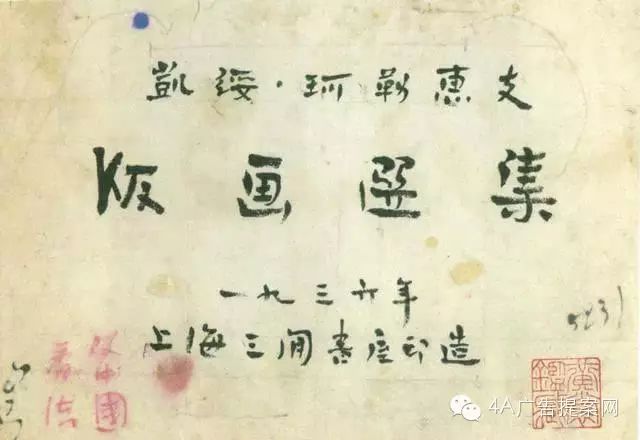 凱綏·珂勒惠支
版画選集
一九三六年
上海三閒書屋印造
5231
4A广告提案网